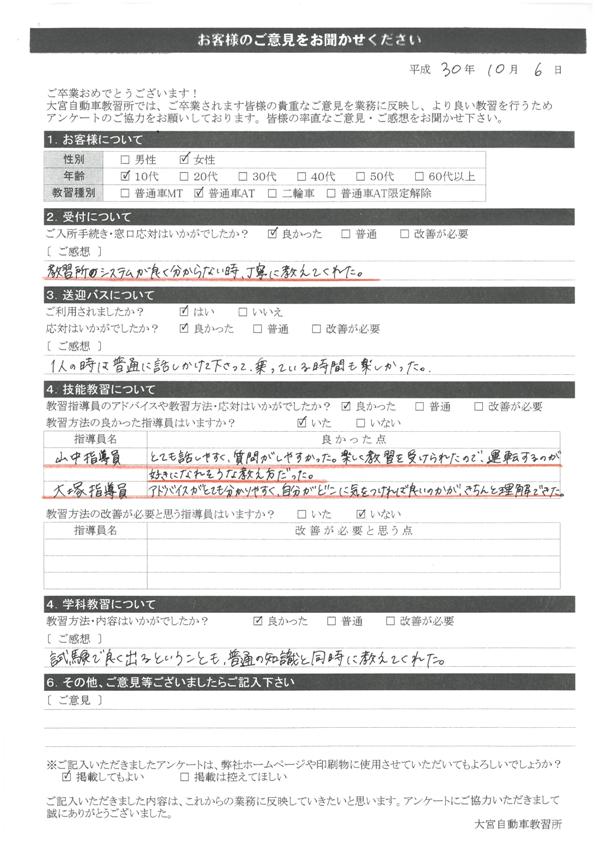 お客様のご意見をお聞かせください
平成 30年 10月 6日
ご卒業おめでとうございます！
大宮自動車教習所では、ご卒業されます皆様の貴重なご意見を業務に反映し、より良い教習を行うため
アンケートのご協力をお願いしております。皆様の率直なご意見・ご感想をお聞かせ下さい。
1. お客様について
性別 □ 男性 ☑ 女性
年齢 ☑ 10代 □ 20代 □ 30代 □ 40代 □ 50代 □ 60代以上
教習種別 □ 普通車MT ☑ 普通車AT □ 二輪車 □ 普通車AT限定解除
2. 受付について
ご入所手続き・窓口応対はいかがでしたか？ ☑ 良かった □ 普通 □ 改善が必要
〔 ご感想 〕
教習所のシステムが良く分からない時、丁寧に教えてくれた。
3. 送迎バスについて
ご利用されましたか？ ☑ はい □ いいえ
応対はいかがでしたか？ ☑ 良かった □ 普通 □ 改善が必要
〔 ご感想 〕
1人の時は普通に話しかけて下さって、乗っている時間も楽しかった。
4. 技能教習について
教習指導員のアドバイスや教習方法・応対はいかがでしたか？ ☑ 良かった □ 普通 □ 改善が必要
教習方法の良かった指導員はいますか？ ☑ いた □ いない
指導員名 良かった点
山中指導員 とても話しやすく、質問がしやすかった。楽しく教習を受けられたので、運転するのが
好きになれそうな教え方だった。
大塚指導員 アドバイスがとても分かりやすく、自分がどこに気をつければ良いのかが、きちんと理解できた。
教習方法の改善が必要と思う指導員はいますか？ □ いた ☑ いない
指導員名 改善が必要と思う点
4. 学科教習について
教習方法・内容はいかがでしたか？ ☑ 良かった □ 普通 □ 改善が必要
〔 ご感想 〕
試験で良く出るということも、普通の知識と同時に教えてくれた。
6. その他、ご意見等ございましたらご記入下さい
〔 ご意見 〕
※ご記入いただきましたアンケートは、弊社ホームページや印刷物に使用させていただいてもよろしいでしょうか？
☑ 掲載してもよい □ 掲載は控えてほしい
ご記入いただきました内容は、これからの業務に反映していきたいと思います。アンケートにご協力いただきまして
誠にありがとうございました。
大宮自動車教習所